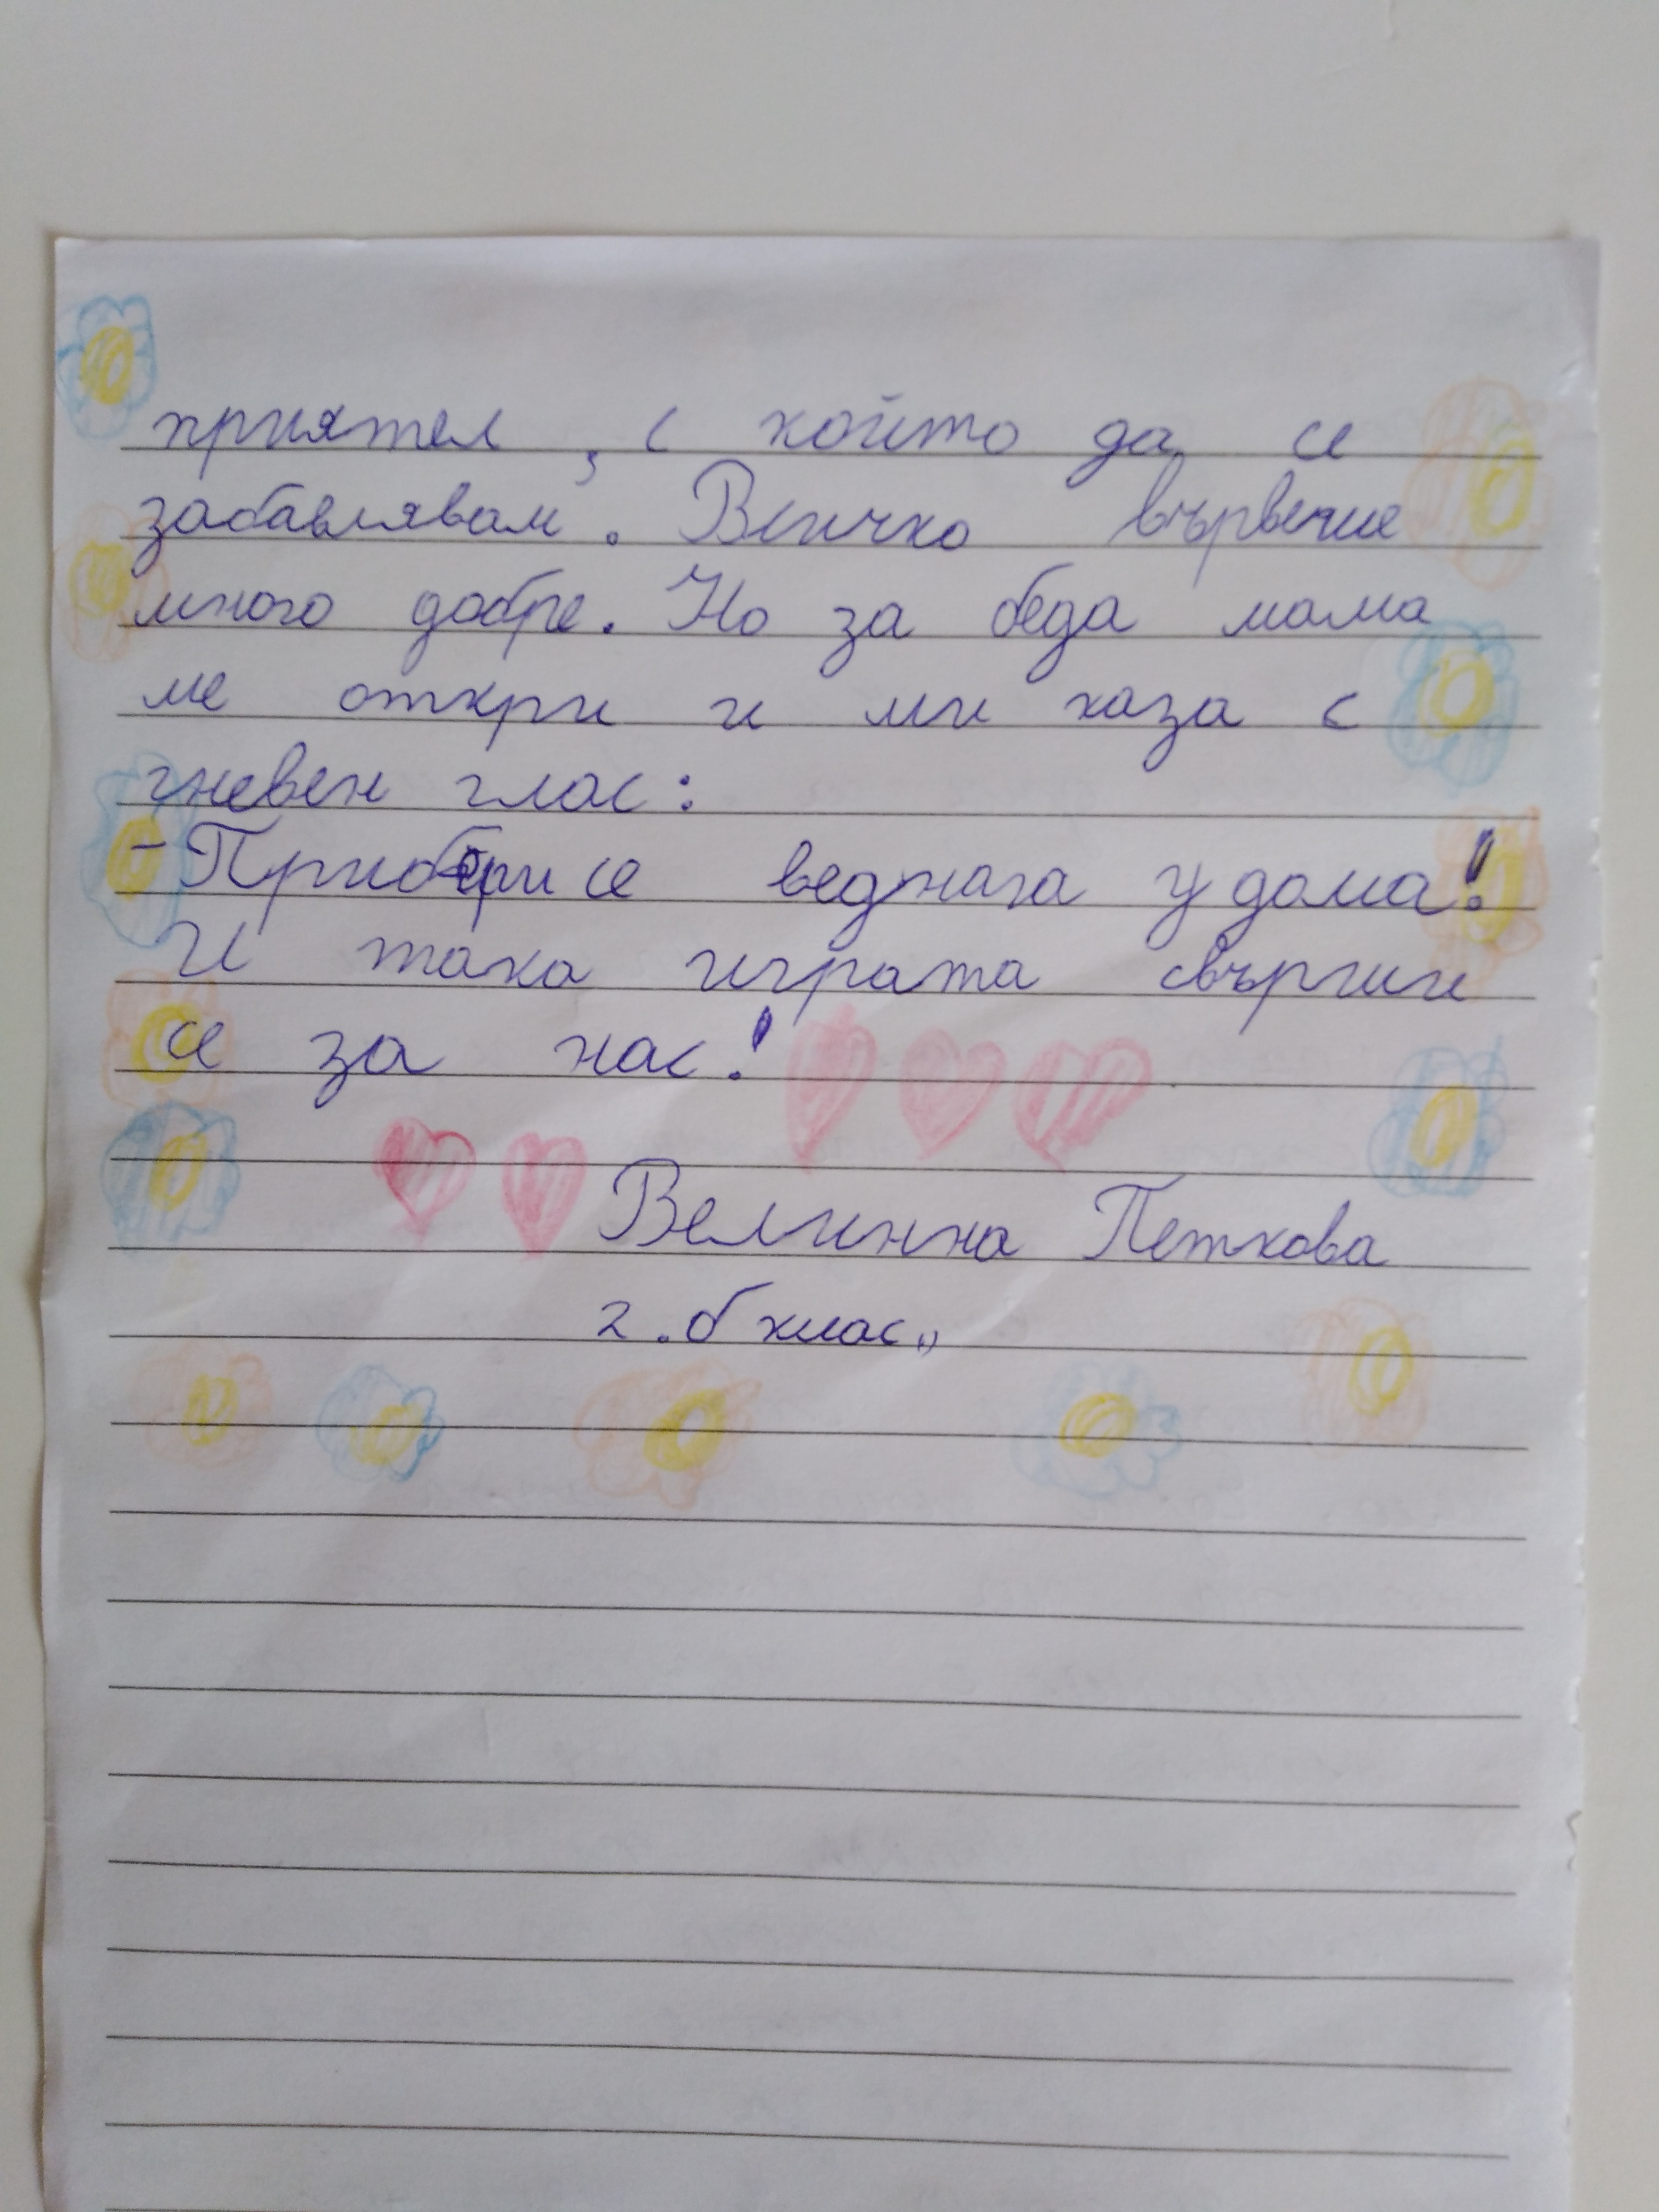 приятел, с който да се
забавлявам. Всичко вървеше
много добре. Но за беда мама
ме откри и ми каза с
гневен глас:
- Прибери се веднага у дома!
И така играта свърши
се за нас!
Велинна Петкова
2. б клас,,